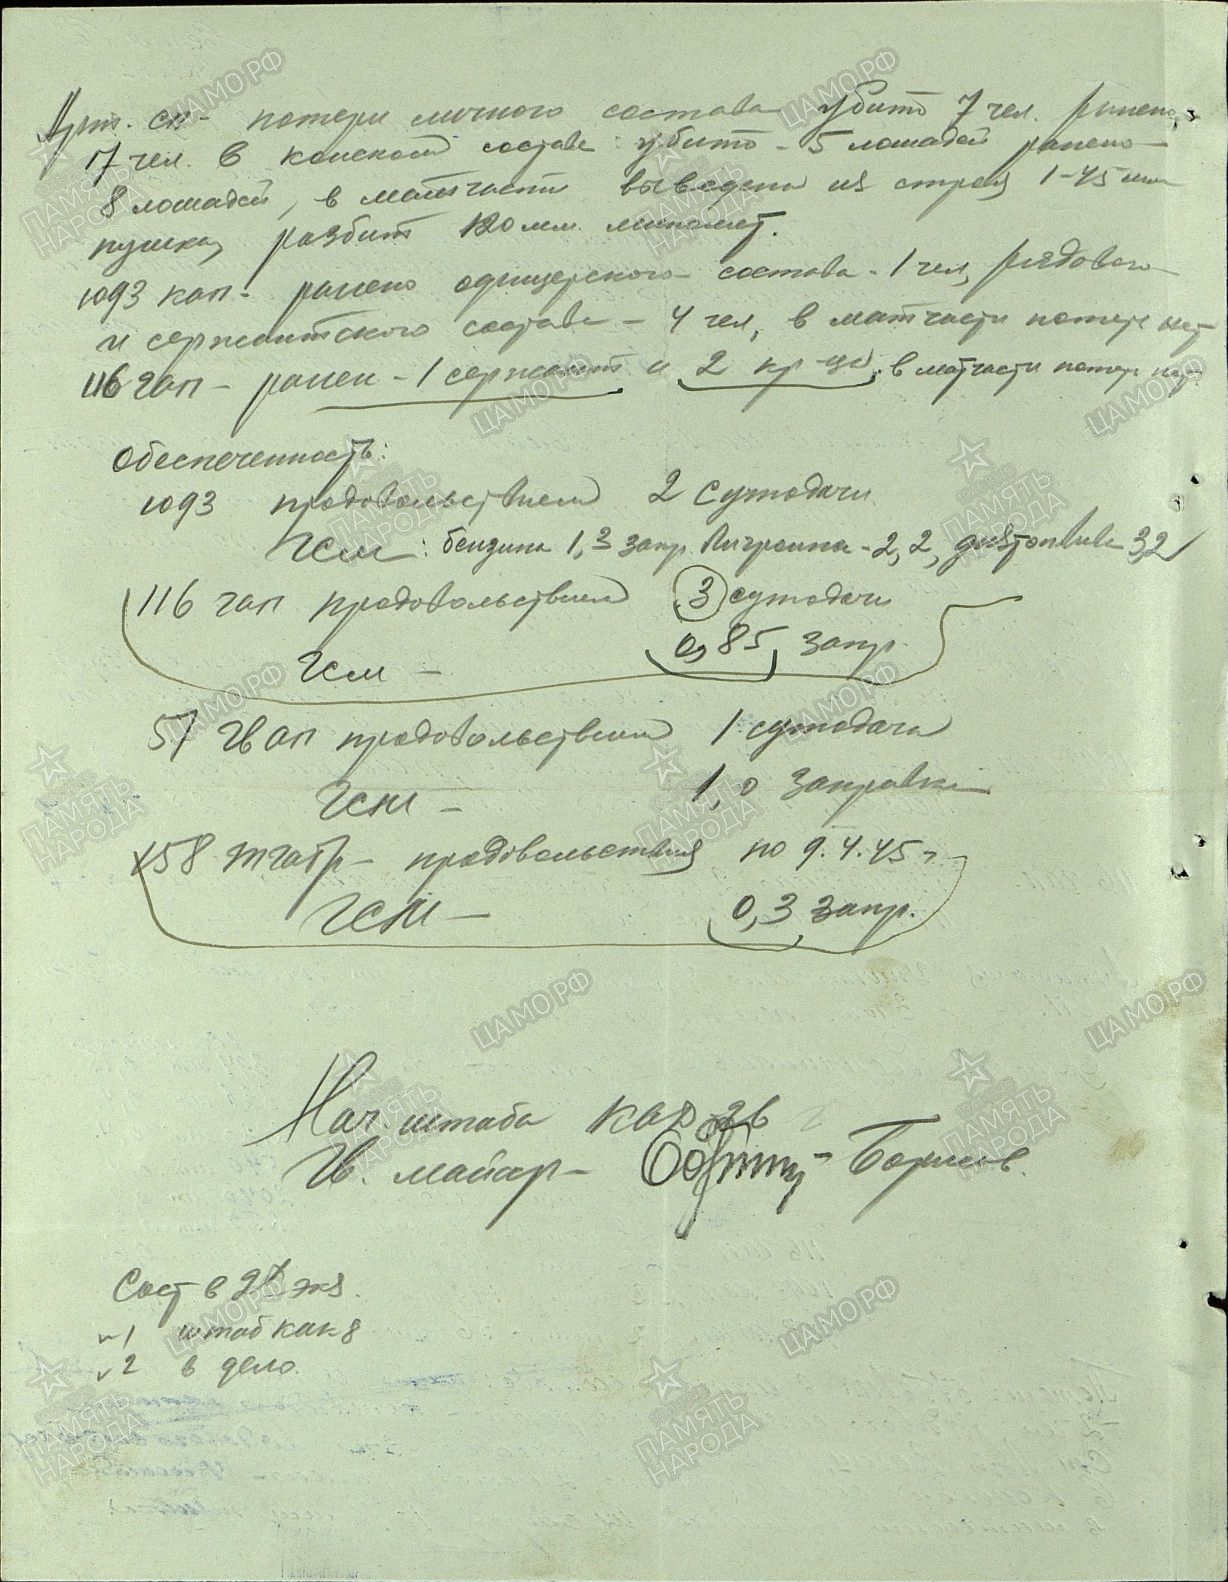 Арт. сп - потери личного состава убито 7 чел. ранено
17 чел. в конском составе убито - 5 лошадей ранено
8 лошадей, в матчасти выведена из строя 1-45 мм
пушка, разбит 120 мм. миномет.
1093 кап - ранено офицерского состава - 1 чел, рядового
и сержантского состава - 4 чел, в матчасти потерь нет
116 гап - ранен - 1 сержант и 2 кр-ца. в матчасти потерь нет.
Обеспеченность:
1093 продовольствием 2 сутодачи
ГСМ: бензина 1,3 запр. Лигроина - 2,2, дизтоплива 3,2
116 гап продовольствием 3 сутодачи
ГСМ - 0,85 запр.
57 гв ап продовольствием 1 сутодача
ГСМ - 1,0 заправки
158 тгабр - продовольствия по 9.4.45 г.
ГСМ - 0,3 запр.
Нач. штаба
Гв. майор - Борисов.
Сост в 2х экз.
№1 штаб
№2 в дело.
ЦАМО.РФ
ПАМЯТЬ НАРОДА